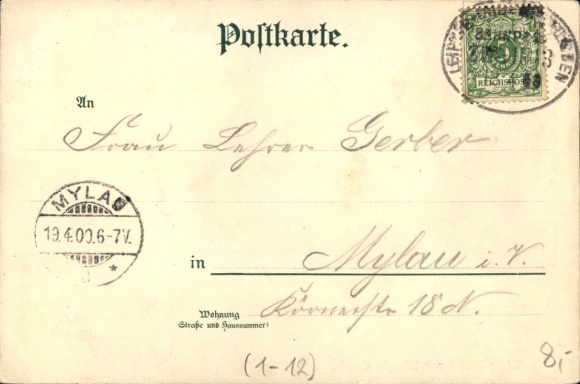 Postkarte.
REICHSPOST
An
Frau Lehrer Gerber
MYLAU
19.4.00.6-7V.
in Mylau i. V.
Wohnung
(Straße und Hausnummer)
Körnerstr 18 N.
(1-12)
8,-